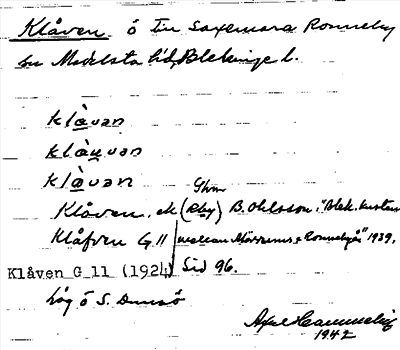 Klåven ö In Saxemara Ronneby
sn Medelsta hd, Blekinge l.
klåvan
klåuvan
klåvan
Shm
Klåven, ek (Rby) B. Ohlsson, "Blek. kusten
Klåfven G 11 mellan Mörrums- & Ronnebyån" 1939,
Klåven G 11 (1924) Sid 96.
hög ö S. Dunsö
1942